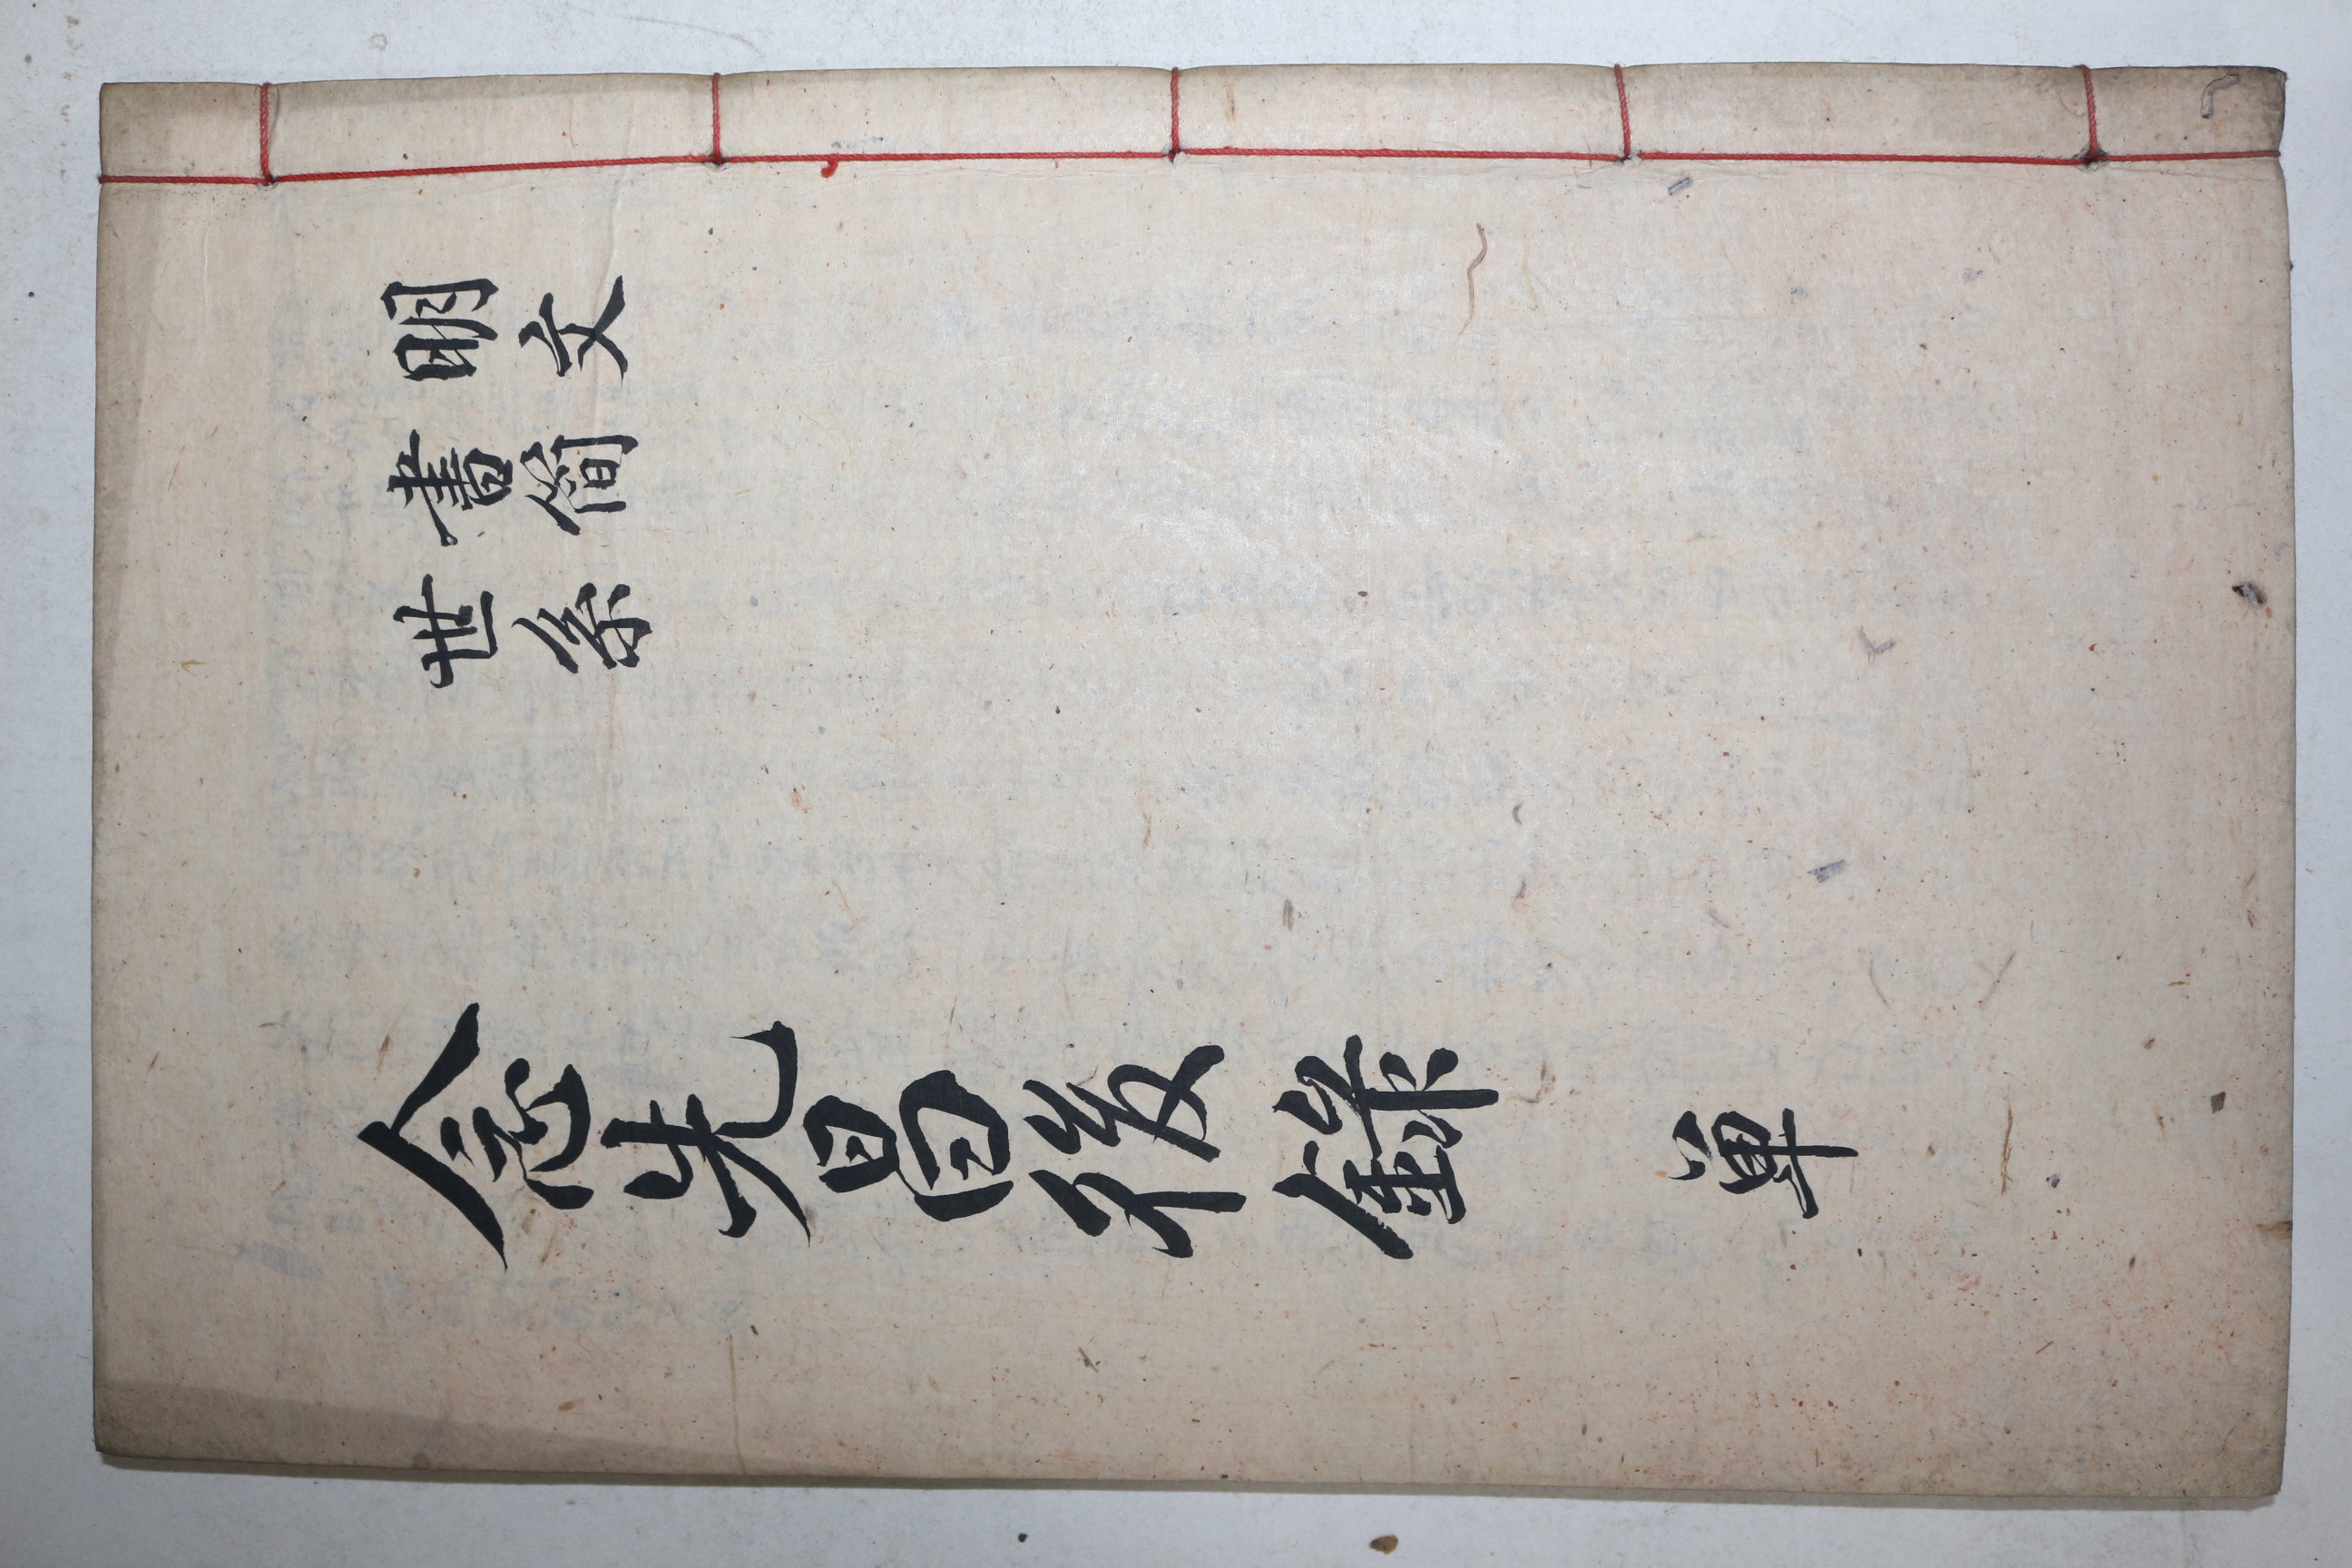 明文
書簡
世系
念先昌後錄 単